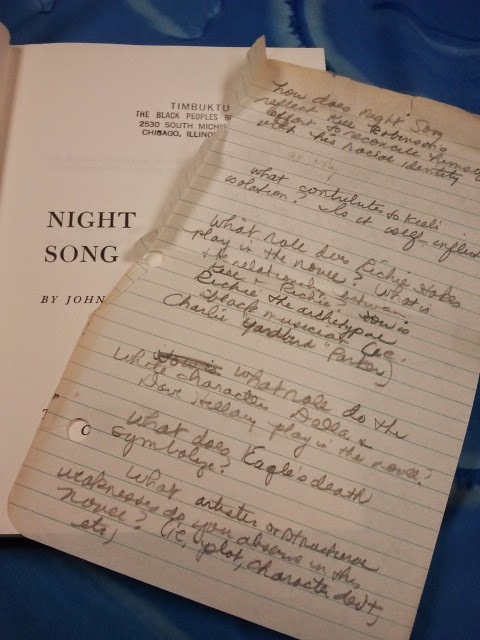 TIMBUKTU
THE BLACK PEOPLES B
2530 SOUTH MICHI
CHICAGO, ILLINOI
NIGHT
SONG
BY JOHN
How does Night Song
reflect Keel Robinson's
effort to reconcile himself
with his racial identity
What contributes to Keel's
isolation? Is it self-inflict
What role does Richie Stokes
play in the novel? What is
the relationship between
Keel & Richie? How is
Richie the archetype
black musician (i.e.
Charlie "Yardbird" Parker)
How is What role do the
White characters Della &
Dave Hillary play in the novel?
What does Eagle's death
symbolize?
What artistic or structural
weaknesses do you observe in this
novel? (i.e., plot, character devt,
etc)